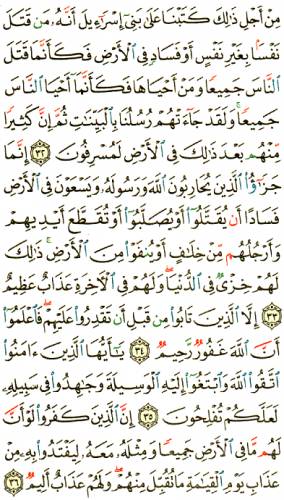 مِنْ أَجْلِ ذَٰلِكَ كَتَبْنَا عَلَىٰ بَنِىٓ إِسْرَٰٓءِيلَ أَنَّهُۥ مَن قَتَلَ
نَفْسًۢا بِغَيْرِ نَفْسٍ أَوْ فَسَادٍ فِى ٱلْأَرْضِ فَكَأَنَّمَا قَتَلَ
ٱلنَّاسَ جَمِيعًا وَمَنْ أَحْيَاهَا فَكَأَنَّمَآ أَحْيَا ٱلنَّاسَ
جَمِيعًا ۚ وَلَقَدْ جَآءَتْهُمْ رُسُلُنَا بِٱلْبَيِّنَٰتِ ثُمَّ إِنَّ كَثِيرًا
مِّنْهُم بَعْدَ ذَٰلِكَ فِى ٱلْأَرْضِ لَمُسْرِفُونَ ٣٢ إِنَّمَا
جَزَٰٓؤُا۟ ٱلَّذِينَ يُحَارِبُونَ ٱللَّهَ وَرَسُولَهُۥ وَيَسْعَوْنَ فِى ٱلْأَرْضِ
فَسَادًا أَن يُقَتَّلُوٓا۟ أَوْ يُصَلَّبُوٓا۟ أَوْ تُقَطَّعَ أَيْدِيهِمْ
وَأَرْجُلُهُم مِّنْ خِلَٰفٍ أَوْ يُنفَوْا۟ مِنَ ٱلْأَرْضِ ۚ ذَٰلِكَ
لَهُمْ خِزْىٌ فِى ٱلدُّنْيَا ۖ وَلَهُمْ فِى ٱلْءَاخِرَةِ عَذَابٌ عَظِيمٌ
٣٣ إِلَّا ٱلَّذِينَ تَابُوا۟ مِن قَبْلِ أَن تَقْدِرُوا۟ عَلَيْهِمْ ۖ فَٱعْلَمُوٓا۟
أَنَّ ٱللَّهَ غَفُورٌ رَّحِيمٌ ٣٤ يَٰٓأَيُّهَا ٱلَّذِينَ ءَامَنُوا۟
ٱتَّقُوا۟ ٱللَّهَ وَٱبْتَغُوٓا۟ إِلَيْهِ ٱلْوَسِيلَةَ وَجَٰهِدُوا۟ فِى سَبِيلِهِۦ
لَعَلَّكُمْ تُفْلِحُونَ ٣٥ إِنَّ ٱلَّذِينَ كَفَرُوا۟ لَوْ أَنَّ
لَهُم مَّا فِى ٱلْأَرْضِ جَمِيعًا وَمِثْلَهُۥ مَعَهُۥ لِيَفْتَدُوا۟ بِهِۦ مِنْ
عَذَابِ يَوْمِ ٱلْقِيَٰمَةِ مَا تُقُبِّلَ مِنْهُمْ ۖ وَلَهُمْ عَذَابٌ أَلِيمٌ ٣٦